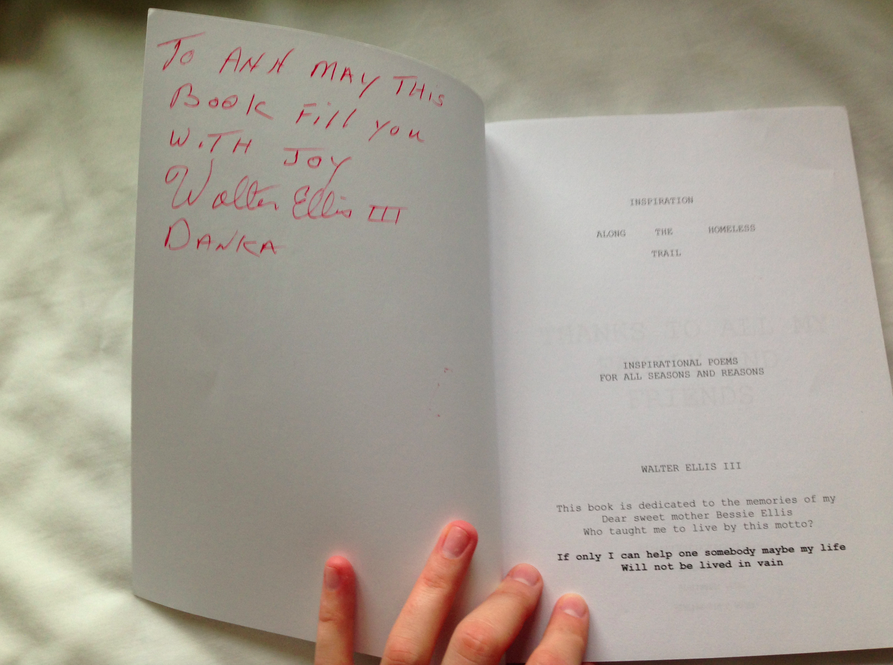 To ANH MAY THIS
Book Fill you
WiTH JOY
Walter Ellis III
DANKA
INSPIRATION
ALONG THE HOMELESS
TRAIL
INSPIRATIONAL POEMS
FOR ALL SEASONS AND REASONS
WALTER ELLIS III
This book is dedicated to the memories of my
Dear sweet mother Bessie Ellis
Who taught me to live by this motto?
If only I can help one somebody maybe my life
Will not be lived in vain
THANKS TO ALL MY
FRIENDS